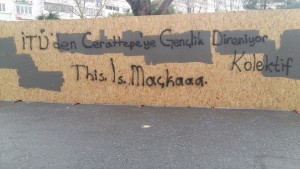 İTÜ'den Cerattepe'ye Gençlik Direniyor
Kolektif
This. İs. Maçkaaa.